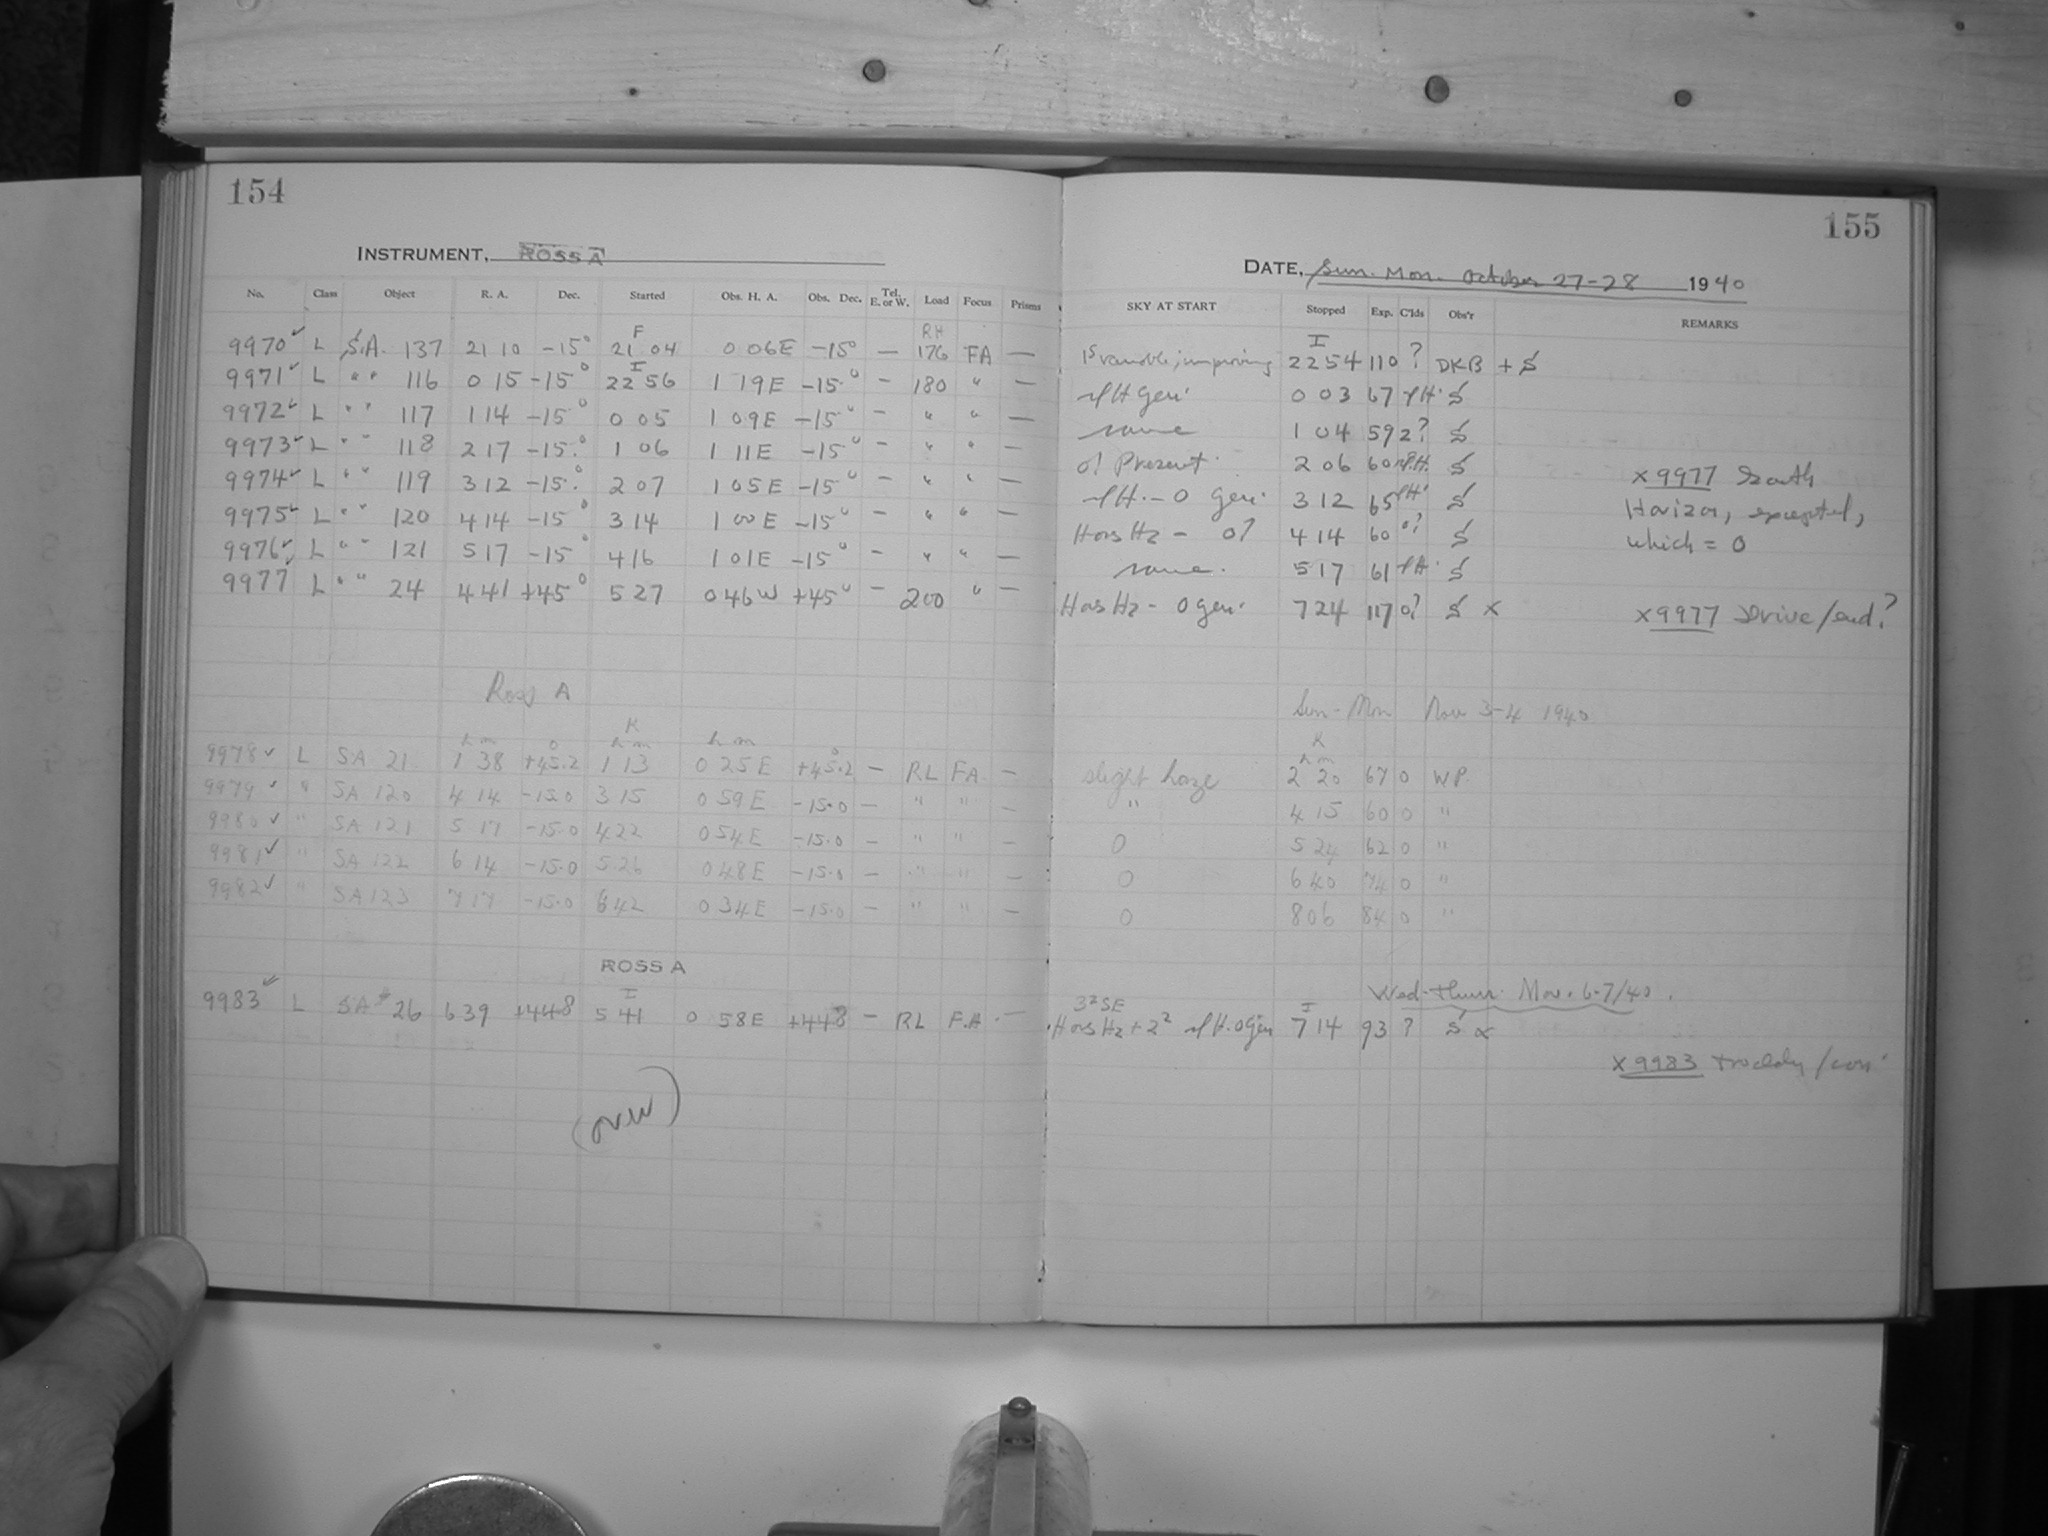 154
INSTRUMENT, ROSS A
No. Class Object R. A. Dec. Started Obs. H. A. Obs. Dec. Tel. E. or W. Load Focus Prisms
F RH
9970 ✓ L S.A. 137 21 10 -15° 21 04 0 06E -15° — 176 FA —
I
9971 ✓ L " " 116 0 15 -15° 22 56 1 19E -15° - 180 " —
9972 ✓ L " " 117 1 14 -15° 0 05 1 09E -15° - " " —
9973 ✓ L " " 118 2 17 -15° 1 06 1 11E -15° - " " —
9974 ✓ L " " 119 3 12 -15° 2 07 1 05E -15° - " " —
9975 ✓ L " " 120 4 14 -15° 3 14 1 00E -15° - " " —
9976 ✓ L " " 121 5 17 -15° 4 16 1 01E -15° - " " —
9977 L " " 24 4 41 +45° 5 27 0 46W +45° - 200 " —
Ross A
K
h m ° h m h m °
9978 ✓ L SA 21 1 38 +45.2 1 13 0 25E +45.2 — RL FA —
9979 ✓ " SA 120 4 14 -15.0 3 15 0 59E -15.0 — " " —
9980 ✓ " SA 121 5 17 -15.0 4 22 0 54E -15.0 — " "
9981 ✓ " SA 122 6 14 -15.0 5 26 0 48E -15.0 — " " —
9982 ✓ " SA 123 7 17 -15.0 6 42 0 34E -15.0 — " " —
ROSS A
I
9983 ✓ L SA 26 6 39 +44.8 5 41 0 58E +44.8 — RL F.A. —
(over)
155
DATE, Sun. Mon. October 27-28 1940
SKY AT START Stopped Exp. C'lds Obs'r REMARKS
I
variable; improving 22 54 110 ? DKB + S
H gen. 0 03 67 S
same 1 04 59 2? S
0? Present. 2 06 60 S
x 9977 South
H. - 0 gen. 3 12 65 S
Horizon, excepted,
Hors Hz - 0? 4 14 60 0? S
which = 0
same. 5 17 61 S
Hors Hz - 0 gen. 7 24 117 0? S x
x 9977 Drive/end?
Sun - Mon Nov 3-4 1940
K
h m
slight haze 2 20 67 0 WP.
" 4 15 60 0 "
0 5 24 62 0 "
0 6 40 74 0 "
0 8 06 84 0 "
Wed-Thur. Nov. 6-7/40.
3² SE I
Hors Hz + 2² H. 0 gen 7 14 93 ? S x
x 9983